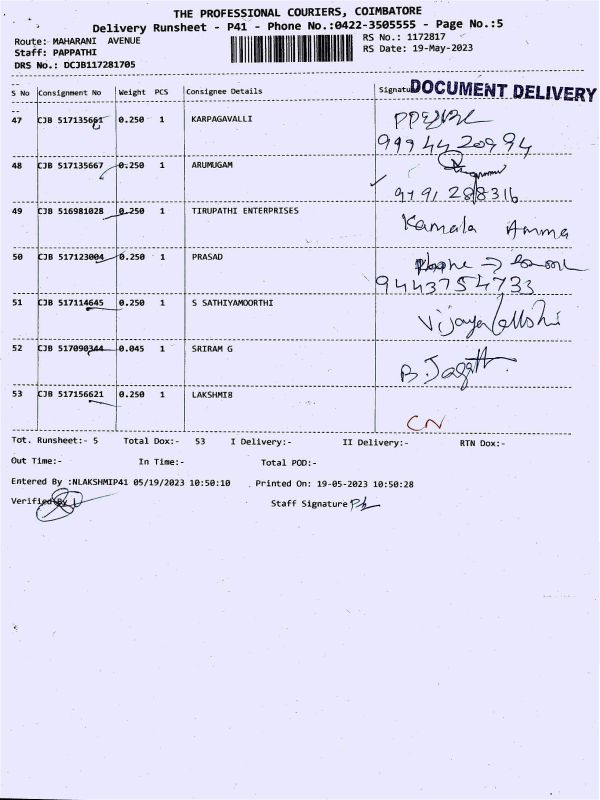 THE PROFESSIONAL COURIERS, COIMBATORE
Delivery Runsheet - P41 - Phone No.:0422-3505555 - Page No.:5
Route: MAHARANI AVENUE RS No.: 1172817
Staff: PAPPATHI RS Date: 19-May-2023
DRS No.: DCJB117281705
DOCUMENT DELIVERY
S No Consignment No Weight PCS Consignee Details Signatu
47 CJB 517135661 0.250 1 KARPAGAVALLI
9994420994
48 CJB 517135667 0.250 1 ARUMUGAM
9791288316
49 CJB 516981028 0.250 1 TIRUPATHI ENTERPRISES Kamala Amma
50 CJB 517123004 0.250 1 PRASAD
9443754733
51 CJB 517114645 0.250 1 S SATHIYAMOORTHI
52 CJB 517090344 0.045 1 SRIRAM G
53 CJB 517156621 0.250 1 LAKSHMI8 CN
Tot. Runsheet:- 5 Total Dox:- 53 I Delivery:- II Delivery:- RTN Dox:-
Out Time:- In Time:- Total POD:-
Entered By :NLAKSHMIP41 05/19/2023 10:50:10 Printed On: 19-05-2023 10:50:28
Verified By Staff Signature